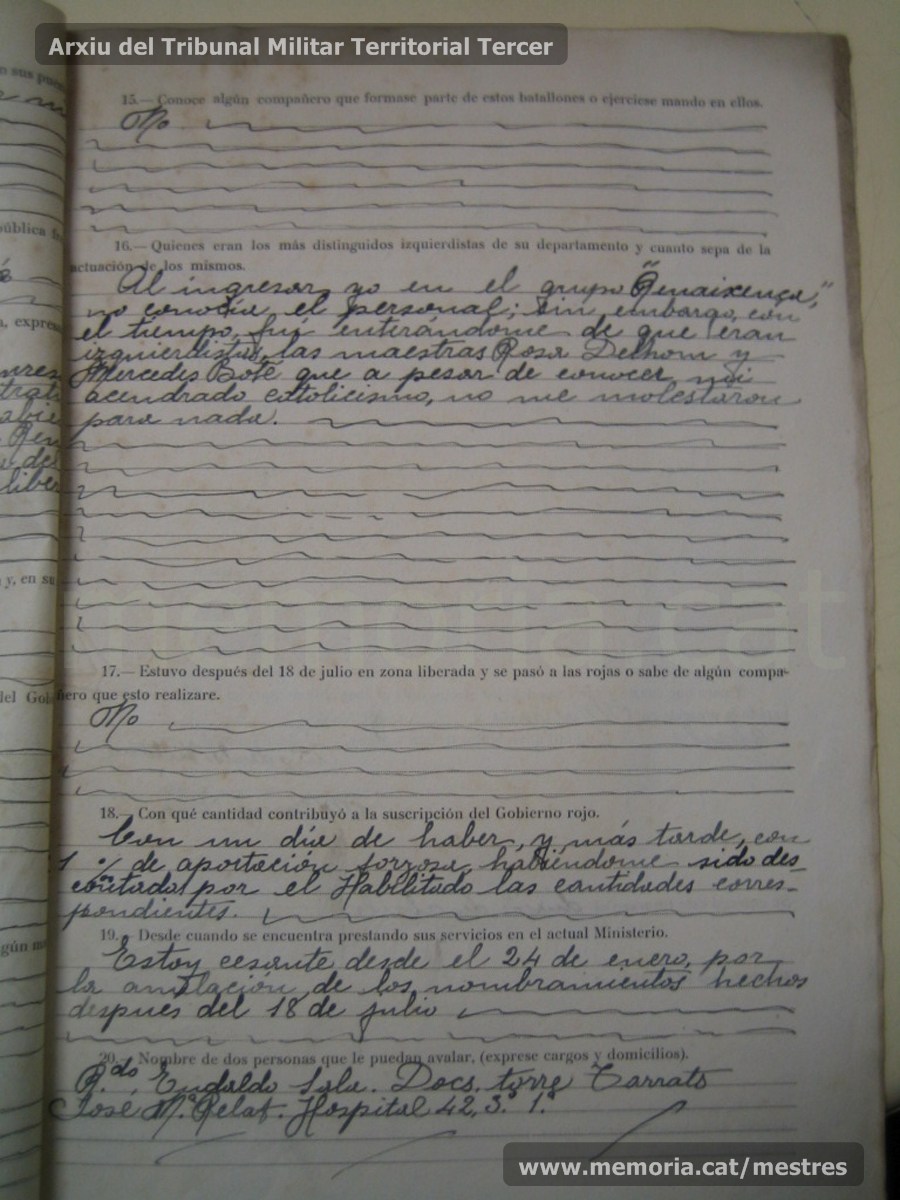 Arxiu del Tribunal Militar Territorial Tercer
15.— Conoce algún compañero que formase parte de estos batallones o ejerciese mando en ellos.
No
16.— Quienes eran los más distinguidos izquierdistas de su departamento y cuanto sepa de la
actuación de los mismos.
Al ingresar yo en el grupo "Renaixença,"
no conocía el personal; sin embargo, con
el tiempo, fuí enterándome de que eran
izquierdistas, las maestras Rosa Delhom y
Mercedes Boté que a pesar de conocer mi
acendrado catolicismo, no me molestaron
para nada.
17.— Estuvo después del 18 de julio en zona liberada y se pasó a las rojas o sabe de algún compa-
ñero que esto realizare.
No
18.— Con qué cantidad contribuyó a la suscripción del Gobierno rojo.
Con un día de haber, y más tarde, con
1 % de aportación forzosa, habiéndome sido des
contadas por el Habilitado las cantidades corres-
pondientes.
19.— Desde cuando se encuentra prestando sus servicios en el actual Ministerio.
Estoy cesante desde el 24 de enero, por
la anulación de los nombramientos hechos
después del 18 de julio
20.— Nombre de dos personas que le puedan avalar, (exprese cargos y domicilios).
R.do Eudaldo Sala. Docs. torre Tarrats
José Mª Relat. Hospital 42, 3º 1ª
memoria.cat
www.memoria.cat/mestres